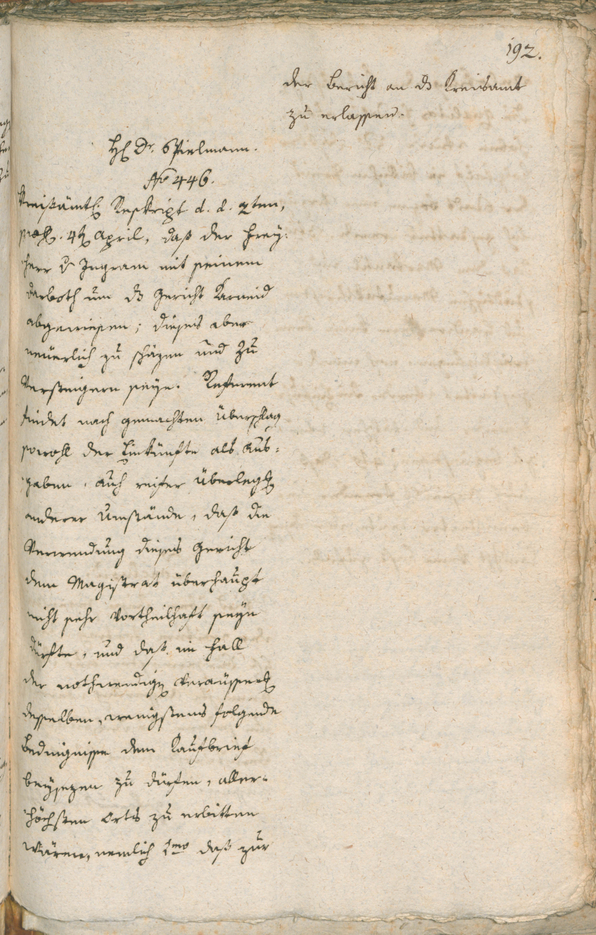 192.
der Bericht an ds Kreisamt
zu erlassen.
H. Dr. Spielmann.
No 446.
Kreisämtl. Reskript d. d. 2ten,
April, daß der Frey:
herr v Ingram mit seinem
Anboth um ds Gericht Karneid
abgewiesen; dieses aber
neuerlich zu schäzen und zu
versteigern seye. Referent
findet nach gemachten Überschlag
sowohl der Einkünfte als Aus:
gaben, auch reifer Überlegg
anderer Umstände, daß die
Verwendung dieses Gericht
dem Magistrat überhaupt
nicht sehr vortheilhaft seyn
dürfte, und daß im Fall
der nothwendign Veräusserg
desselben, wenigstens folgende
Bedingnisse dem Kaufbrief
beysezen zu dürfen, aller-
höchsten Orts zu erbitten
wären, nemlich 1mo daß zur